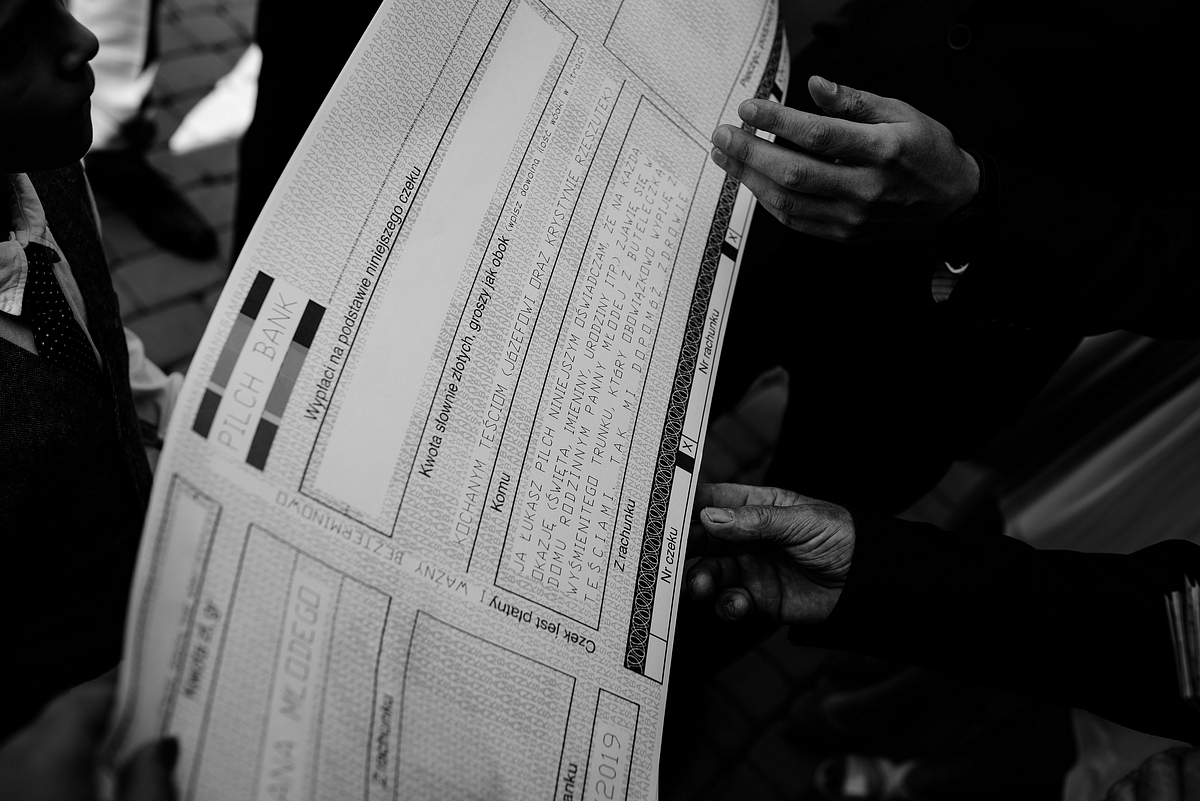 PILCH BANK
Wypłaci na podstawie niniejszego czeku
Kwota słownie złotych, groszy jak obok (wpisz dowolną ilość wódki w litrach)
KOCHANYM TEŚCIOM (JÓZEFOWI ORAZ KRYSTYNIE RZESZUTEK)
Komu
JA ŁUKASZ PILCH NINIEJSZYM OŚWIADCZAM, ŻE NA KAŻDĄ
OKAZJĘ (ŚWIĘTA, IMIENINY, URODZINY ITP) ZJAWIĘ SIĘ W
DOMU RODZINNYM PANNY MŁODEJ Z BUTELECZKĄ
WYŚMIENITEGO TRUNKU, KTÓRY OBOWIĄZKOWO WYPIJĘ Z
TEŚCIAMI. TAK MI DOPOMÓŻ ZDROWIE
Z rachunku
Nr czeku
X
Nr rachunku
X
Czek jest płatny I WAŻNY BEZTERMINOWO
Kwota zł, gr
ANA MŁODEGO
Z rachunku
anku
/2019